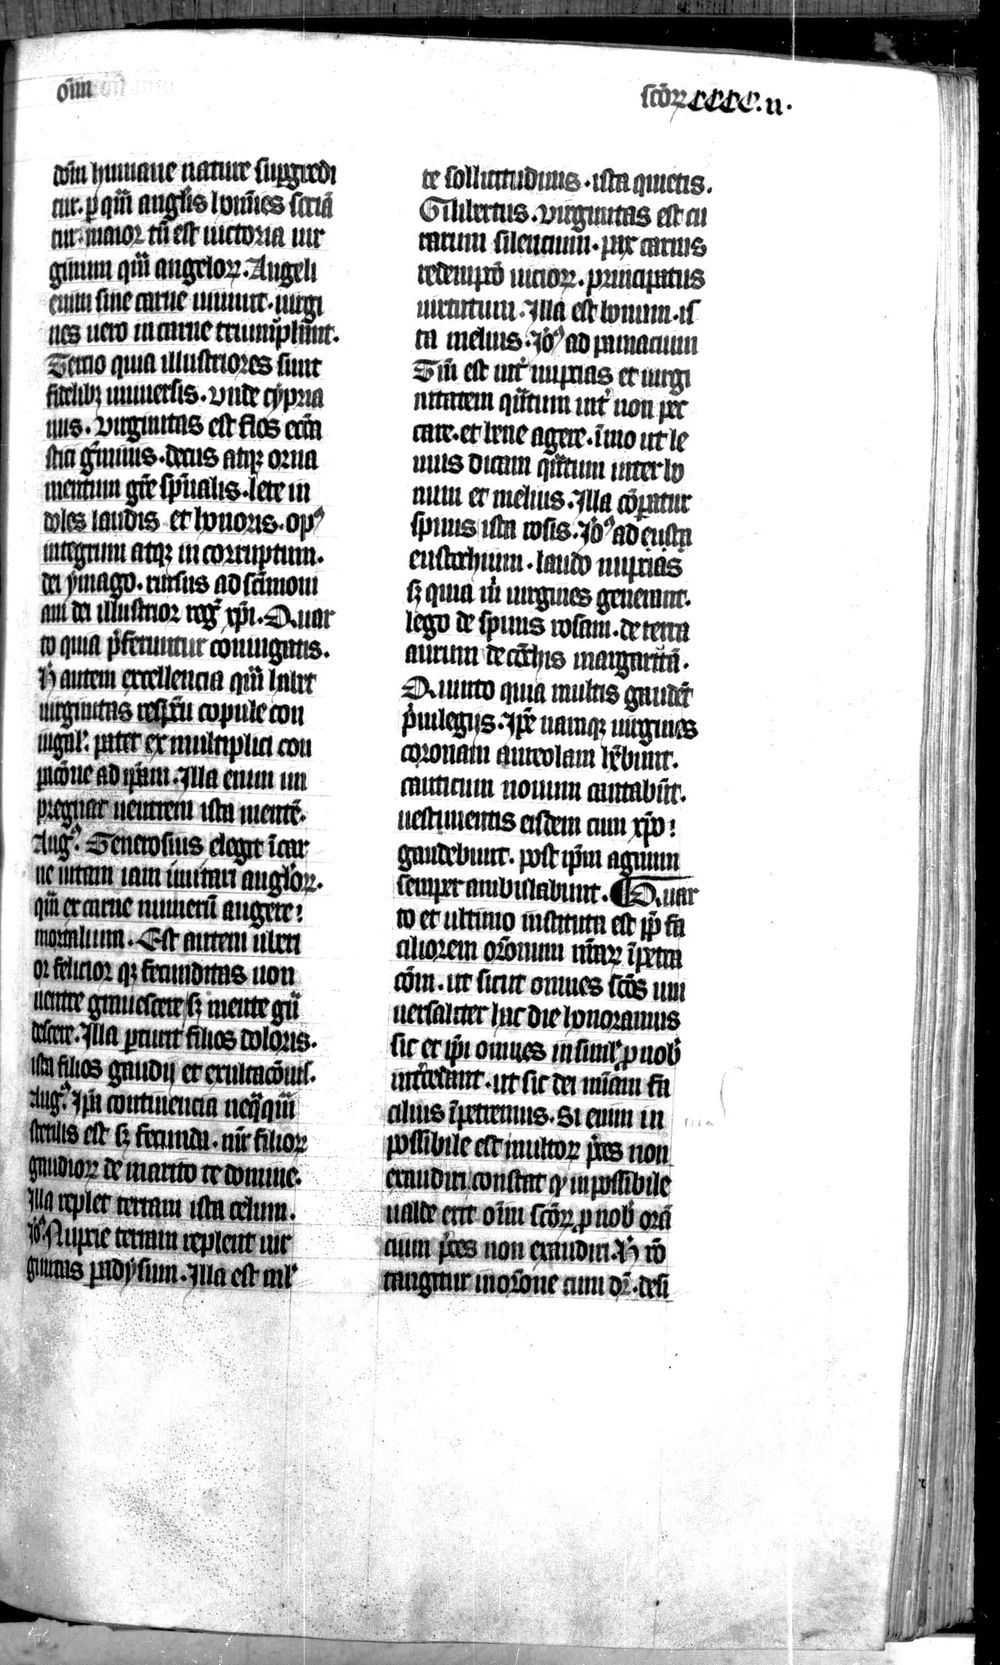 oīm
scōꝝ CCCC.ii.
dōm humane nature suꝑgredi
tur. ꝑ qm̄ anglis hoīnes scriā
tur. maior tn̄ est uictoria uir
ginum qm̄ angeloꝝ. Angeli
enim sine carne uiuunt. uirgi
nes uero in carne triumphāt.
Tertio quia illustriores sunt
fidelibꝫ uniuersis. Vnde cypria
nus. virginitas est flos eccīa
stici gm̄inis. decus atqꝫ orna
mentum grē spūalis. lete in
doles laudis et honoris. opꝰ
integrum atqꝫ incorruptum.
dei ymago. rursus ad scīmoni
am dei illustrior reg̾ xp̄i. Quar
to quia p̄feruntur coniugatis.
H̾ autem excellencia qm̄ habet
uirginitas respcū copule con
iugal̾. patet ex multiplici con
pacōne ad ipsam. Illa enim im
pregnat uentrem ista mentē.
Augꝰ. Generosius elegit ī car
ne uitam iam imitari angloꝝ.
qm̄ ex carne numerū augere!
mortalium. Est autem uberi
or felicior qꝫ fecunditas non
uentre grauescere sꝫ mente gn̄
descere. Illa parturit filios doloris.
ista filios gaudij et exultacōnis.
Augꝰ. Ipā continencia neqq̄m
sterilis est sꝫ fecunda. mr̄ filioꝝ
gaudioꝝ de marito te domine.
Illa replet terram ista celum.
Ibꝰ. Nupcie terram replent uir
ginitas ꝑadysum. Illa est ml̾
te sollicitudinis. ista quietis.
Gilibertus. virginitas est cu
rarum silencium. pax carnis
redempcō uicioꝝ. principatus
uirtutum. Illa est bonum. is
ta melius. Ibꝰ ad pamacium
Tm̄ est int̾ nupcias et uirgi
nitatem qn̄tum int̾ non pec
care. et bene agere. īmo ut le
uius dicam qn̄tum inter bo
num et melius. Illa cōparatur
spinis ista rosis. Ibꝰ ad eusta
eustochium. laudo nupcias
sꝫ quia m̄ uirgines generant.
lego de spinis rosam. de terra
aurum de cōchis margaritā.
Quinto quia multis gaudēt
p̄uilegijs. Ipē namqꝫ uirgines
coronam aureolam hēbunt.
canticum nouum cantabūt.
uestimentis eisdem cum xpō!
gaudebunt. post ipm̄ agnum
semper ambulabunt. ¶ Quar
to et ultimo instituta est ꝓp̄ fa
ciliorem orōnum nr̄aꝝ īpetra
cōm. ut sicut omnes scōs uni
uersaliter hac die honoramus
sic et ip̄i omnes in simul ꝓ nob̾
intercedant. ut sic dei mīam fa
cilius īpetremus. Si enim in
possibile est multoꝝ p̄ces non
exaudiri constat qꝫ inpossibile
ualde erit oīm scōꝝ ꝓ nob̾ orā
cium p̄ces non exaudiri. H̾ rō
tangitur in orōne cum dr̄. desi